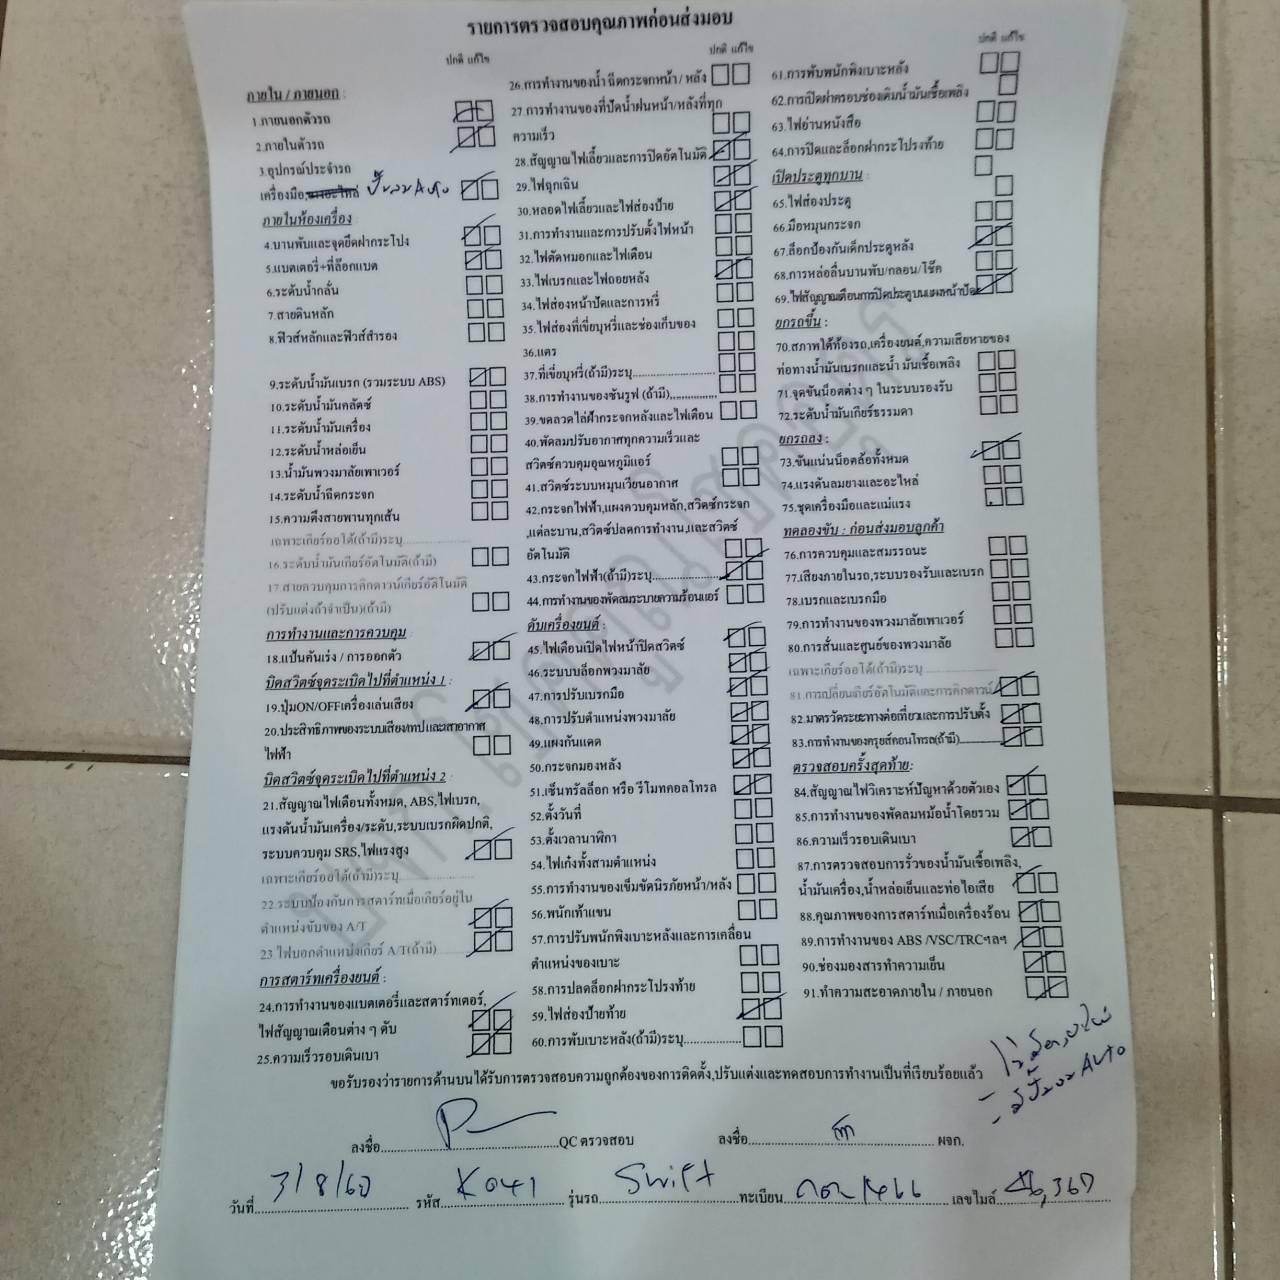 รายการตรวจสอบคุณภาพก่อนส่งมอบ
ปกติ แก้ไข
ภายใน / ภายนอก :
1.ภายนอกตัวรถ
2.ภายในตัวรถ
3.อุปกรณ์ประจำรถ
เครื่องมือ,ยางอะไหล่ ปั๊มลม Auto
ภายในห้องเครื่อง :
4.บานพับและจุดยึดฝากระโปง
5.แบตเตอรี่+ที่ล๊อกแบต
6.ระดับน้ำกลั่น
7.สายดินหลัก
8.ฟิวส์หลักและฟิวส์สำรอง
9.ระดับน้ำมันเบรก (รวมระบบ ABS)
10.ระดับน้ำมันคลัตช์
11.ระดับน้ำมันเครื่อง
12.ระดับน้ำหล่อเย็น
13.น้ำมันพวงมาลัยเพาเวอร์
14.ระดับน้ำฉีดกระจก
15.ความตึงสายพานทุกเส้น
เฉพาะเกียร์ออโต้(ถ้ามี)ระบุ
16.ระดับน้ำมันเกียร์อัตโนมัติ(ถ้ามี)
17.สายควบคุมการคิกดาวน์เกียร์อัตโนมัติ
(ปรับแต่งถ้าจำเป็น)(ถ้ามี)
การทำงานและการควบคุม
18.แป้นคันเร่ง / การออกตัว
บิดสวิตซ์จุดระเบิดไปที่ตำแหน่ง 1 :
19.ปุ่มON/OFFเครื่องเล่นเสียง
20.ประสิทธิภาพของระบบเสียง/เทปและเสาอากาศ
ไฟฟ้า
บิดสวิตซ์จุดระเบิดไปที่ตำแหน่ง 2
21.สัญญาณไฟเตือนทั้งหมด, ABS,ไฟเบรก,
แรงดันน้ำมันเครื่อง/ระดับ,ระบบเบรกผิดปกติ,
ระบบควบคุม SRS,ไฟแรงสูง
เฉพาะเกียร์ออโต้(ถ้ามี)ระบุ
22.ระบบป้องกันการสตาร์ทเมื่อเกียร์อยู่ใน
ตำแหน่งขับของ A/T
23.ไฟบอกตำแหน่งเกียร์ A/T(ถ้ามี)
การสตาร์ทเครื่องยนต์ :
24.การทำงานของแบตเตอรี่และสตาร์ทเตอร์,
ไฟสัญญาณเตือนต่าง ๆ ดับ
25.ความเร็วรอบเดินเบา
ปกติ แก้ไข
26.การทำงานของน้ำ ฉีดกระจกหน้า / หลัง
27.การทำงานของที่ปัดน้ำฝนหน้า/หลังที่ทุก
ความเร็ว
28.สัญญาณไฟเลี้ยวและการปิดอัตโนมัติ
29.ไฟฉุกเฉิน
30.หลอดไฟเลี้ยวและไฟส่องป้าย
31.การทำงานและการปรับตั้งไฟหน้า
32.ไฟตัดหมอกและไฟเตือน
33.ไฟเบรกและไฟถอยหลัง
34.ไฟส่องหน้าปัดและการหรี่
35.ไฟส่องที่เขี่ยบุหรี่และช่องเก็บของ
36.แตร
37.ที่เขี่ยบุหรี่(ถ้ามี)ระบุ........................
38.การทำงานของซันรูฟ (ถ้ามี)...............
39.ขดลวดไล่ฝ้ากระจกหลังและไฟเตือน
40.พัดลมปรับอากาศทุกความเร็วและ
สวิตซ์ควบคุมอุณหภูมิแอร์
41.สวิตซ์ระบบหมุนเวียนอากาศ
42.กระจกไฟฟ้า,แผงควบคุมหลัก,สวิตซ์กระจก
,แต่ละบาน,สวิตซ์ปลดการทำงาน,และสวิตซ์
อัตโนมัติ
43.กระจกไฟฟ้า(ถ้ามี)ระบุ....................
44.การทำงานของพัดลมระบายความร้อนแอร์
ดับเครื่องยนต์ :
45.ไฟเตือนเปิดไฟหน้าปิดสวิตซ์
46.ระบบบล็อกพวงมาลัย
47.การปรับเบรกมือ
48.การปรับตำแหน่งพวงมาลัย
49.แผงกันแดด
50.กระจกมองหลัง
51.เซ็นทรัลล็อก หรือ รีโมทคอลโทรล
52.ตั้งวันที่
53.ตั้งเวลานาฬิกา
54.ไฟเก๋งทั้งสามตำแหน่ง
55.การทำงานของเข็มขัดนิรภัยหน้า/หลัง
56.พนักเท้าแขน
57.การปรับพนักพิงเบาะหลังและการเคลื่อน
ตำแหน่งของเบาะ
58.การปลดล็อกฝากระโปรงท้าย
59.ไฟส่องป้ายท้าย
60.การพับเบาะหลัง(ถ้ามี)ระบุ..................
ปกติ แก้ไข
61.การพับพนักพิงเบาะหลัง
62.การเปิดฝาครอบช่องเติมน้ำมันเชื้อเพลิง
63.ไฟอ่านหนังสือ
64.การปิดและล็อกฝากระโปรงท้าย
เปิดประตูทุกบาน :
65.ไฟส่องประตู
66.มือหมุนกระจก
67.ล็อกป้องกันเด็กประตูหลัง
68.การหล่อลื่นบานพับ/กลอน/โช๊ค
69.ไฟสัญญาณเตือนการปิดประตูบนแผงหน้าปัด
ยกรถขึ้น :
70.สภาพใต้ท้องรถ,เครื่องยนต์,ความเสียหายของ
ท่อทางน้ำมันเบรกและน้ำ มันเชื้อเพลิง
71.จุดขันน็อตต่าง ๆ ในระบบรองรับ
72.ระดับน้ำมันเกียร์ธรรมดา
ยกรถลง :
73.ขันแน่นน็อตล้อทั้งหมด
74.แรงดันลมยางและอะไหล่
75.ชุดเครื่องมือและแม่แรง
ทดลองขับ : ก่อนส่งมอบลูกค้า
76.การควบคุมและสมรรถนะ
77.เสียงภายในรถ,ระบบรองรับและเบรก
78.เบรกและเบรกมือ
79.การทำงานของพวงมาลัยเพาเวอร์
80.การสั่นและศูนย์ของพวงมาลัย
เฉพาะเกียร์ออโต้(ถ้ามี)ระบุ
81.การเปลี่ยนเกียร์อัตโนมัติและการคิกดาวน์
82.มาตรวัดระยะทางต่อเที่ยวและการปรับตั้ง
83.การทำงานของครุยส์คอนโทรล(ถ้ามี)..........
ตรวจสอบครั้งสุดท้าย:
84.สัญญาณไฟวิเคราะห์ปัญหาด้วยตัวเอง
85.การทำงานของพัดลมหม้อน้ำโดยรวม
86.ความเร็วรอบเดินเบา
87.การตรวจสอบการรั่วของน้ำมันเชื้อเพลิง,
น้ำมันเครื่อง,น้ำหล่อเย็นและท่อไอเสีย
88.คุณภาพของการสตาร์ทเมื่อเครื่องร้อน
89.การทำงานของ ABS /VSC/TRCฯลฯ
90.ช่องมองสารทำความเย็น
91.ทำความสะอาดภายใน / ภายนอก
- มีปั๊มลม Auto
ขอรับรองว่ารายการด้านบนได้รับการตรวจสอบความถูกต้องของการติดตั้ง,ปรับแต่งและทดสอบการทำงานเป็นที่เรียบร้อยแล้ว
ลงชื่อ..............................QC ตรวจสอบ ลงชื่อ.............................. ผจก.
วันที่ 3/8/60 รหัส K041 รุ่นรถ Swift ทะเบียน 1466 เลขไมล์